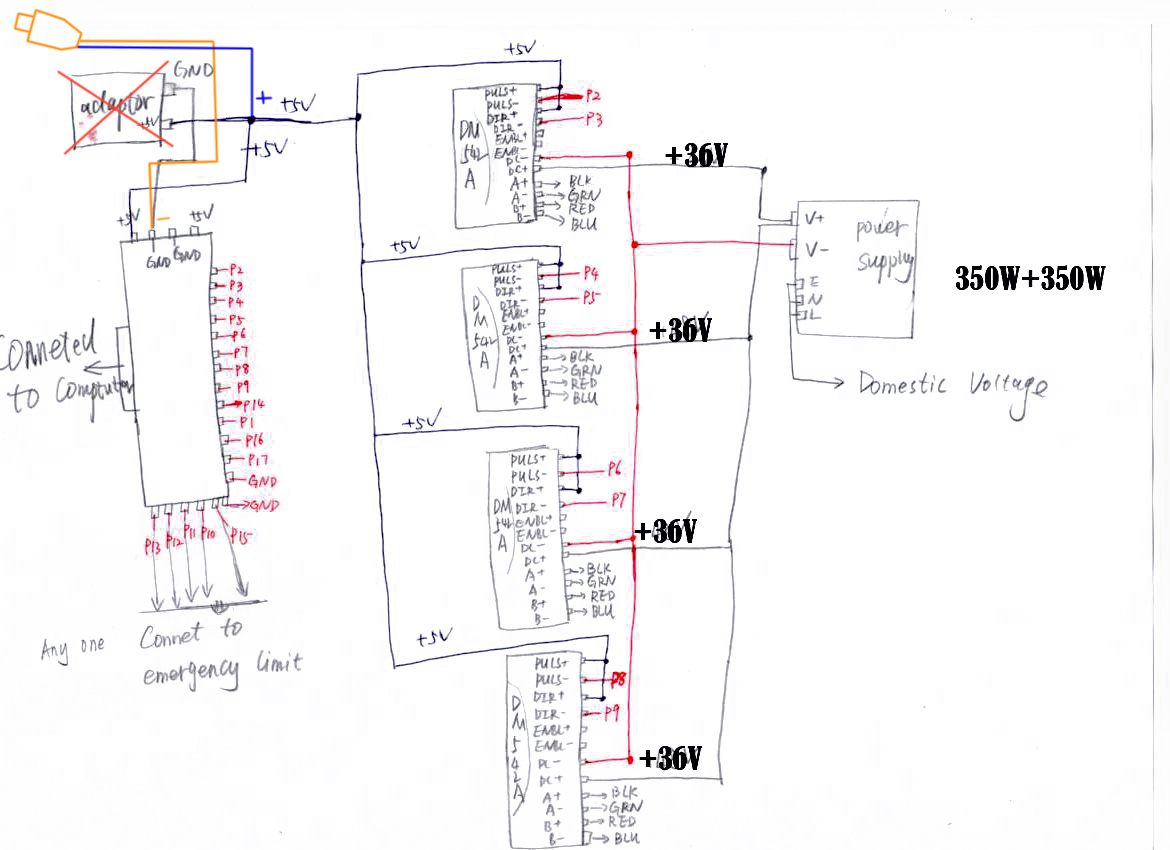 GND
adaptor
+5V
+
+5V
+5V
+5V
GND
GND
+5V
P2
P3
P4
P5
P6
P7
P8
P9
P14
P1
P16
P17
GND
GND
Conneted
to Comptuter
P13
P12
P11
P10
P15
Any one
Connet to
emergency limit
+5V
DM
542
A
PULS+
PULS-
DIR+
DIR-
ENBL+
ENBL-
DC-
DC+
A+
A-
B+
B-
P2
P3
BLK
GRN
RED
BLU
+36V
+5V
D
M
542
A
PULS+
PULS-
DIR+
DIR-
ENBL+
ENBL-
DC-
DC+
A+
A-
B+
B-
P4
P5
BLK
GRN
RED
BLU
+36V
+5V
DM
542
A
PULS+
PULS-
DIR+
DIR-
ENBL+
ENBL-
DC-
DC+
A+
A-
B+
B-
P6
P7
BLK
GRN
RED
BLU
+36V
+5V
D
M
5
4
2
A
PULS+
PULS-
DIR+
DIR-
ENBL+
ENBL-
DC-
DC+
A+
A-
B+
B-
P8
P9
BLK
GRN
RED
BLU
+36V
V+
V-
E
N
L
power
supply
350W+350W
Domestic Voltage